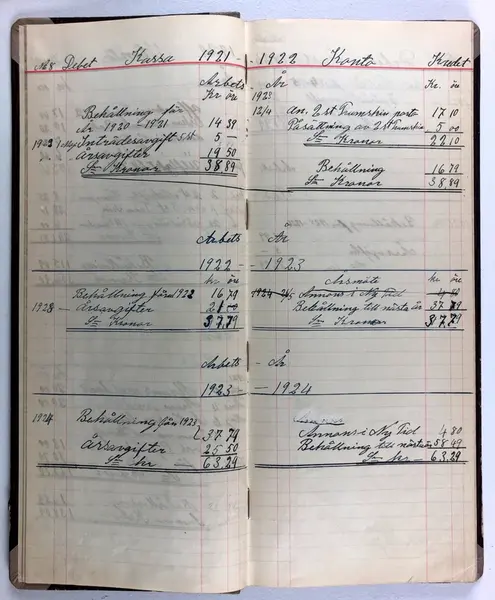 Debet Kassa 1921 - - 1922 Konto Kredit
Arbets År
Kr öre 1923 Kr. öre
Behållning för
år 1920-1921 14 39
1922 Maj Inträdesavgift 5/st 5 —
Årsavgifter 19 50
Sm Kronor 38.89
12/4 an. 2 st Trumskin porto 17 10
Påsättning av 2 st Trumskin 5 00
Sm Kronor 22 10
Behållning 16.79
Sm Kronor 38.89
Arbets År
1922 - - 1923
kr öre Årsmöte kr öre
Behållning från 1922 16 79
1923 — Årsavgifter 21 00
Sm Kronor 37.79
1924 Annons i Ny Tid 4 80
Behållning till nästa år 37 79
Sm Kronor 37.79
Arbets - År
1923 - - 1924
1924 Behållning från 1923
37.79
Årsavgifter 25 50
Sm kr — 63.29
Annons i Ny Tid 4 80
Behållning till nästa år 58 49
Sm kr — 63.29